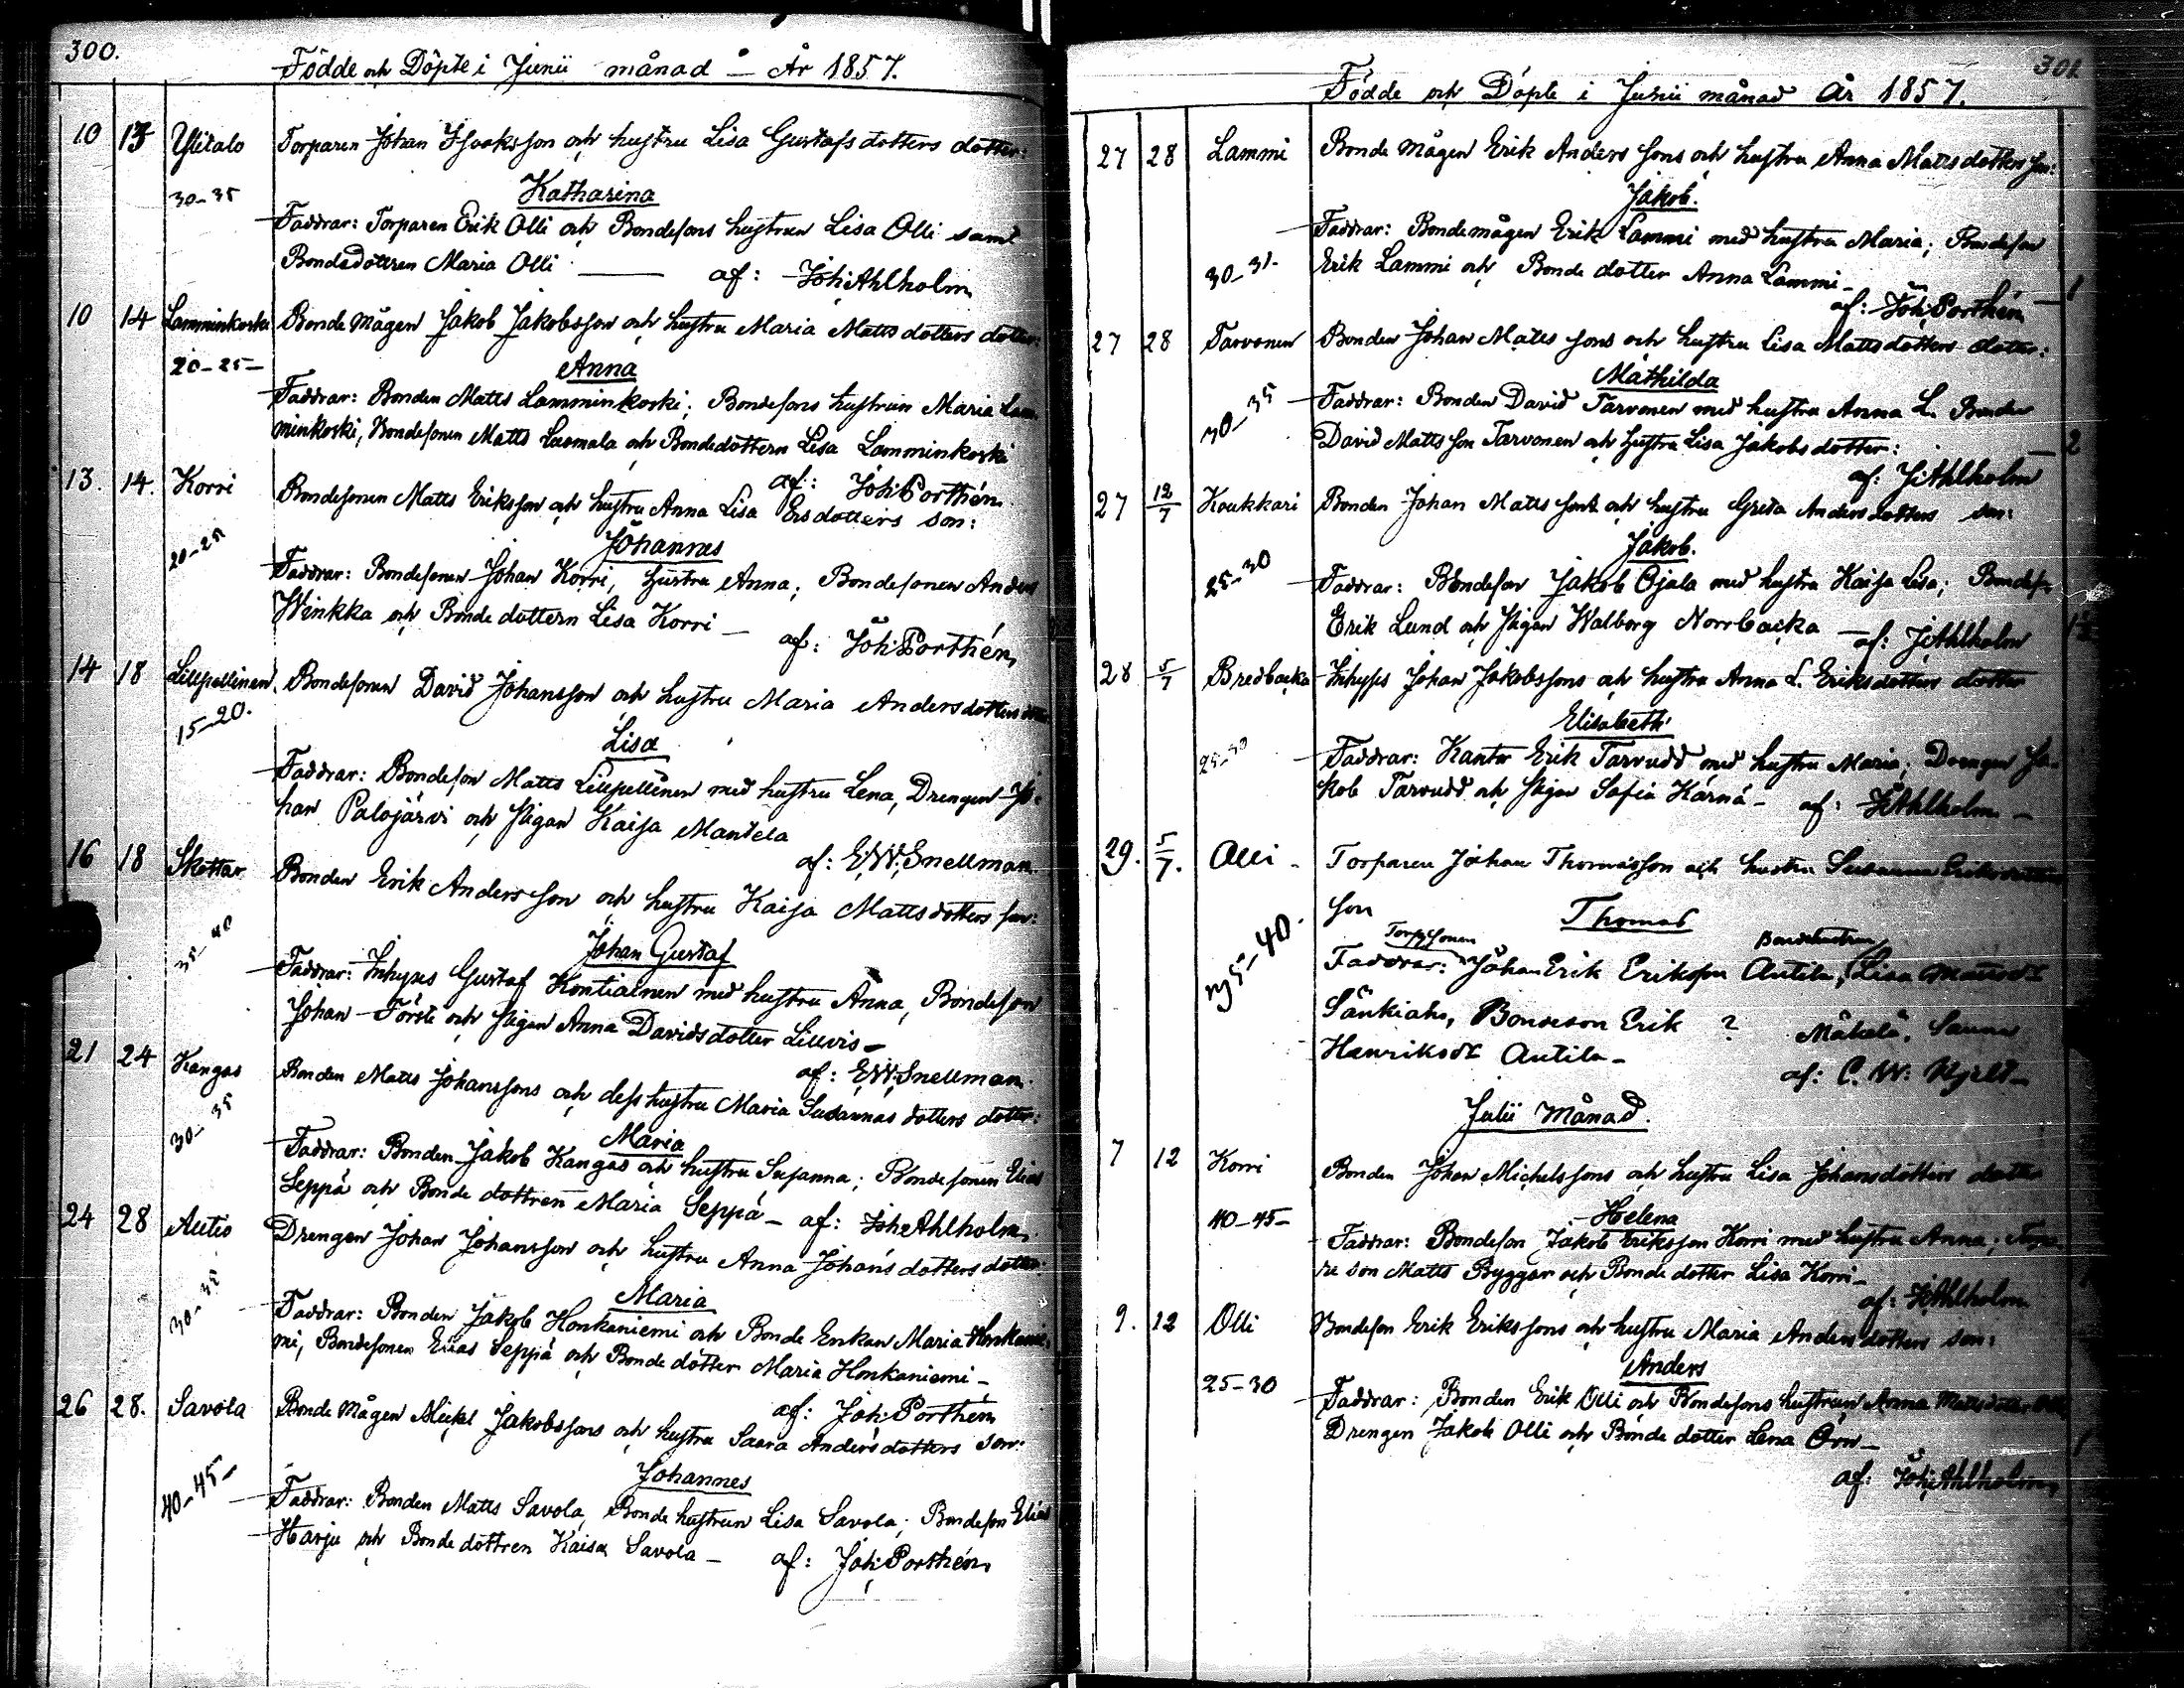 300.
Födde och Döpte i Junii månad — År 1857.
10 13 Ylitalo Torparen Johan Isaaksson och hustru Lisa Gustafsdotters dotter:
30-35 Katharina
Faddrar: Torparen Erik Olli och Bondesons hustrun Lisa Olli samt
Bondedottren Maria Olli — af: Joh: Ahlholm
10 14 Lamminkoski Bonde mågen Jakob Jakobsson och hustru Maria Mattsdotters dotter:
20-25- Anna
Faddrar: Bonden Matts Lamminkoski; Bondesons hustrun Maria Lam-
minkoski, Bondesonen Matts Luomala och Bondedottern Lisa Lamminkoski
af: Joh: Porthén
13. 14. Korri Bondesonen Matts Eriksson och hustru Anna Lisa Ersdotters son:
20-25 Johannes
Faddrar: Bondesonen Johan Korri, hustru Anna; Bondesonen Anders
Winkka och Bondedottern Lisa Korri — af: Joh: Porthén
14 18 Lillpellinen Bondesonen David Johansson och hustru Maria Andersdotters dotter
15-20. Lisa
Faddrar: Bondeson Matts Lillpellinen med hustru Lena, Drengen Jo-
han Palojärvi och Pigan Kaisa Mantela
af: E.W. Snellman.
16 18 Skottar Bonden Erik Andersson och hustru Kaisa Mattsdotters son:
35-40 Johan Gustaf
Faddrar: Inhyses Gustaf Kontiainen med hustru Anna, Bondeson
Johan Förste och Pigan Anna Davidsdotter Lillvis —
af: E.W. Snellman.
21 24 Kangas Bonden Matts Johanssons och dess hustru Maria Susannas dotters dotter:
30-35 Maria
Faddrar: Bonden Jakob Kangas och hustru Susanna; Bondesonen Elias
Seppä och Bonde dottren Maria Seppä — af: Joh: Ahlholm
24 28 Autio Drengen Johan Johansson och hustru Anna Johansdotters dotter:
30-35 Maria
Faddrar: Bonden Jakob Honkaniemi och Bonde Enkan Maria Honkanie-
mi, Bondesonen Elias Seppä och Bonde dotter Maria Honkaniemi —
af: Joh: Porthén
26 28. Savola Bonde mågen Mickel Jakobssons och hustru Saara Andersdotters son:
40-45- Johannes
Faddrar: Bonden Matts Savola, Bonde hustrun Lisa Savola; Bondeson Elias
Harju och Bonde dottren Kaisa Savola — af: Joh: Porthén
301
Födde och Döpte i Junii månad År 1857.
27 28 Lammi Bonde mågen Erik Anderssons och hustru Anna Mattsdotters son:
Jakob.
Faddrar: Bondemågen Erik Lammi med hustru Maria; Bondeson
30-31- Erik Lammi och Bonde dotter Anna Lammi —
af: Joh: Porthén — 1
27 28 Tarvonen Bonden Johan Matts sons och hustru Lisa Mattsdotters dotter:
Mathilda
30-35 Faddrar: Bonden David Tarvonen med hustru Anna L. Bonden
David Mattsson Tarvonen och hustru Lisa Jakobsdotter: — 2
af: J: Ahlholm
27 12/7 Koukkari Bonden Johan Mattssons och hustru Greta Andersdotters son:
Jakob.
25-30 Faddrar: Bondeson Jakob Ojala med hustru Kaisa Lisa; Bondeson
Erik Lund och Pigan Walborg Norrbacka — af: J: Ahlholm
28 5/7 Bredbacka Inhyses Johan Jakobssons och hustru Anna L. Eriksdotters dotter
Elisabeth
25-30 Faddrar: Kantor Erik Tarvudd med hustru Maria; Drengen Ja-
kob Tarvudd och Pigan Sofia Kärnä — af: J: Ahlholm —
29. 5/7. Olli — Torparen Johan Thomasson och hustru Susanna Eriksdotters
son Thomas
35-40. Torpsonen Bondehustrun
Faddrar: Johan Erik Eriksson Antila, Lisa Mattsdt
Sänkiaho, Bondeson Erik ? Mäkelä, Sanna
Henriksdt Antila —
af: C. W: Kjeld —
Julii Månad.
7 12 Korri Bonden Johan Michelssons och hustru Lisa Johansdotters dotter
40-45- Helena
Faddrar: Bondeson Jakob Eriksson Korri med hustru Anna;
re son Matts Byggar och Bonde dotter Lisa Korri —
af: J: Ahlholm
9. 12 Olli Bondeson Erik Erikssons och hustru Maria Andersdotters son:
Anders
25-30 Faddrar: Bonden Erik Olli och Bondesons hustrun Anna Mattsdotter Olli
Drengen Jakob Olli och Bonde dotter Lena Örn — 1
af: Joh: Ahlholm